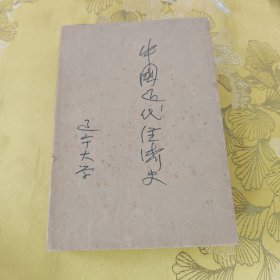 中國近代经济史
辽宁大学